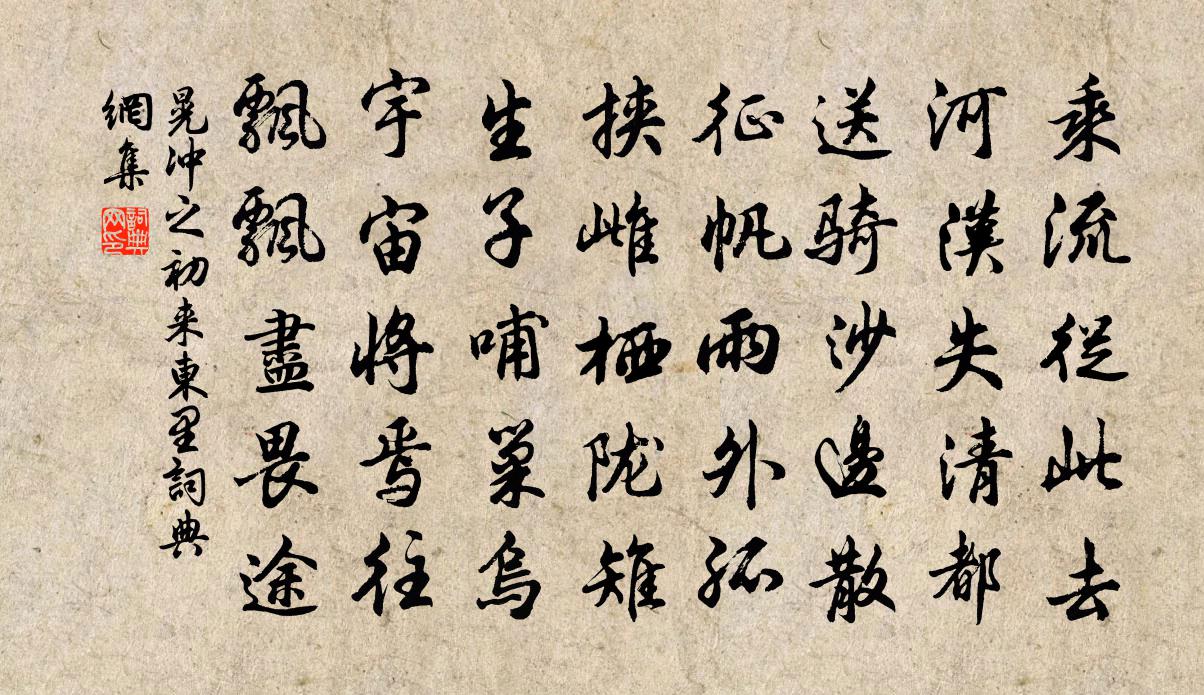 乘流從此去
河漢失清都
送騎沙邊散
征帆雨外孤
挾雌栖陇雉
生子哺巢烏
宇宙將焉往
飄飄盡畏途
晁冲之初来東里詞典
網集
詞典
网印